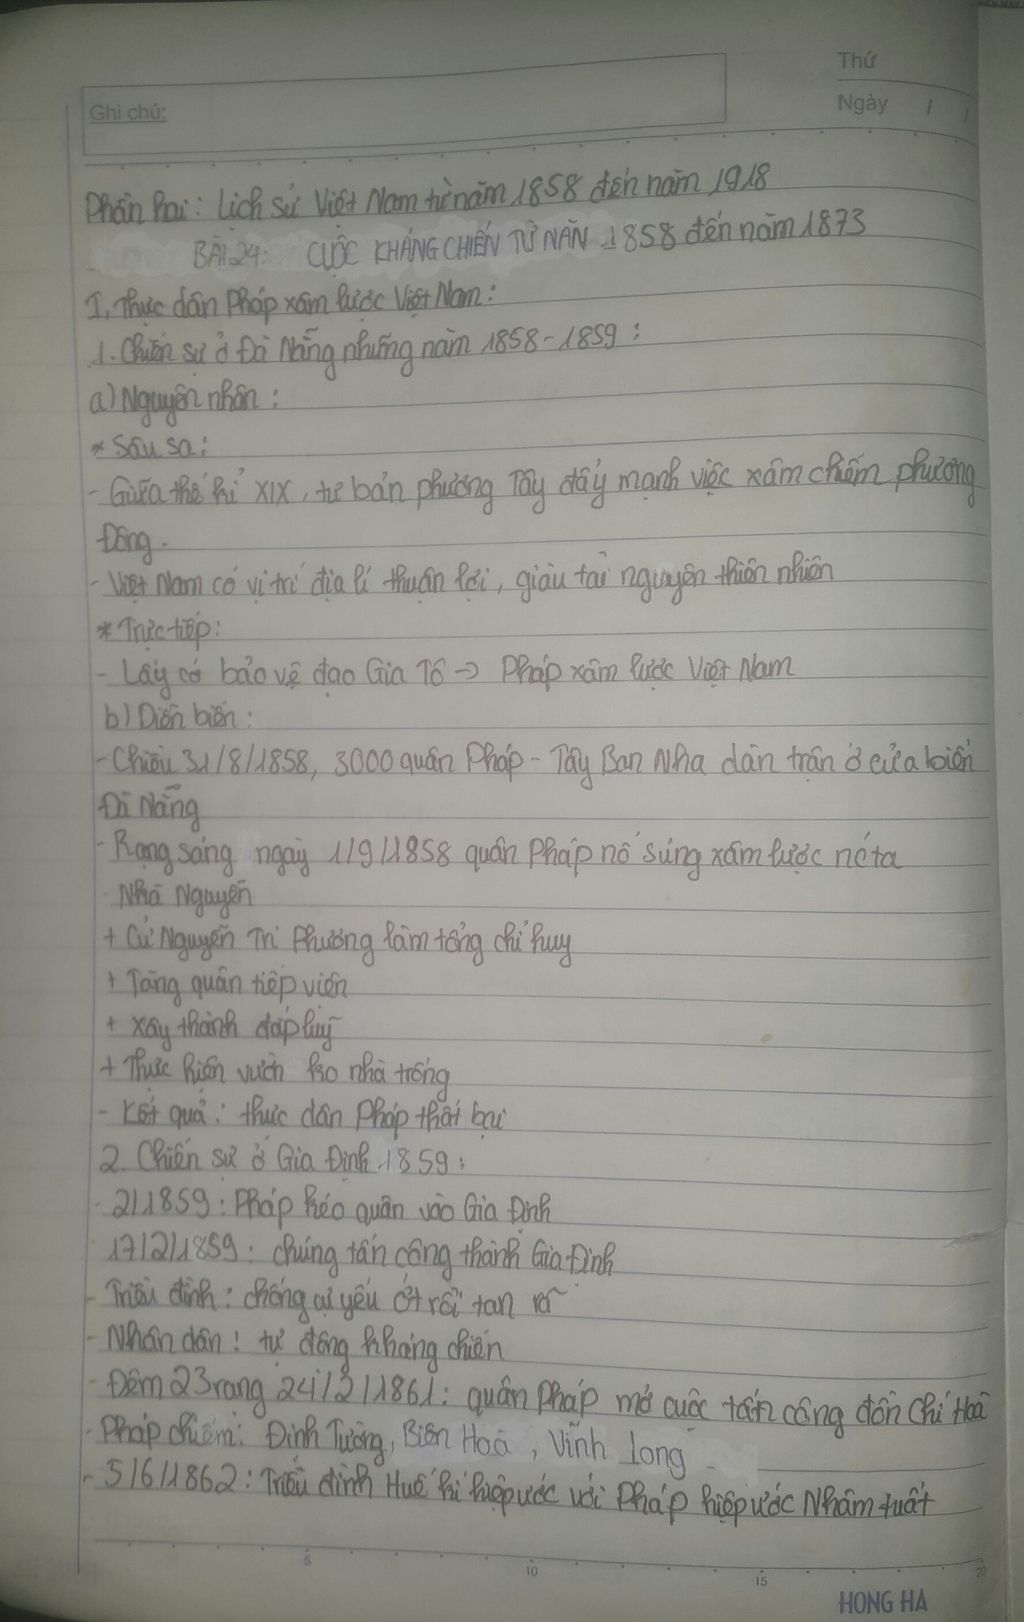 Thứ
Ghi chú:
Ngày / /
Phần hai: Lịch sử Việt Nam từ năm 1858 đến năm 1918
BÀI 24: CUỘC KHÁNG CHIẾN TỪ NĂN 1858 đến năm 1873
I. Thực dân Pháp xâm lược Việt Nam:
1. Chiến sự ở Đà Nẵng những năm 1858-1859:
a) Nguyên nhân:
* Sâu sa:
- Giữa thế kỉ XIX, tư bản phương Tây đẩy mạnh việc xâm chiếm phương
Đông.
- Việt Nam có vị trí địa lí thuận lợi, giàu tài nguyên thiên nhiên
* Trực tiếp:
- Lấy cớ bảo vệ đạo Gia Tô -> Pháp xâm lược Việt Nam
b) Diễn biến:
- Chiều 31/8/1858, 3000 quân Pháp - Tây Ban Nha dàn trận ở cửa biển
Đà Nẵng
- Rạng sáng ngày 1/9/1858 quân Pháp nổ súng xâm lược ncta
- Nhà Nguyễn
+ Cử Nguyễn Tri Phương làm tổng chỉ huy
+ Tăng quân tiếp viện
+ Xây thành đắp luỹ
+ Thực hiện vườn ko nhà trống
- Kết quả: thực dân Pháp thất bại
2. Chiến sự ở Gia Định 1859:
- 2/1859: Pháp kéo quân vào Gia Định
17/2/1859: chúng tấn công thành Gia Định
- Triều đình: chống cự yếu ớt rồi tan rã
- Nhân dân: tự động kháng chiến
- Đêm 23 rạng 24/2/1861: quân Pháp mở cuộc tấn công đồn Chí Hoà
- Pháp chiếm: Định Tường, Biên Hoà, Vĩnh Long
- 5/6/1862: Triều đình Huế kí hiệp ước với Pháp hiệp ước Nhâm tuất
5 10 15 20
HONG HA